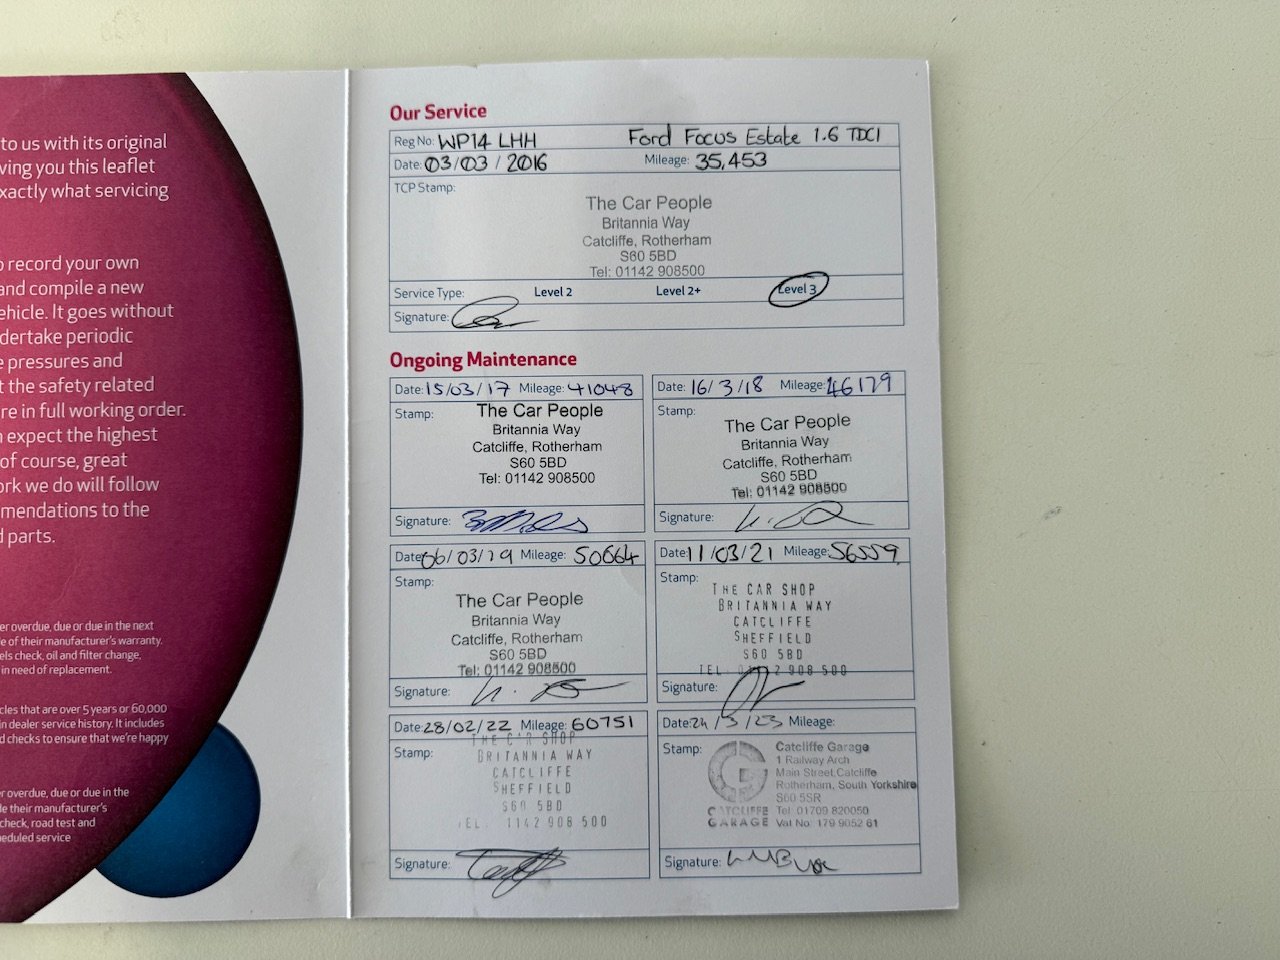 to us with its original
ving you this leaflet
exactly what servicing
o record your own
and compile a new
ehicle. It goes without
dertake periodic
e pressures and
t the safety related
re in full working order.
n expect the highest
of course, great
ork we do will follow
mendations to the
d parts.
er overdue, due or due in the next
e of their manufacturer's warranty.
els check, oil and filter change,
in need of replacement.
cles that are over 5 years or 60,000
n dealer service history. It includes
d checks to ensure that we're happy
er overdue, due or due in the
le their manufacturer's
check, road test and
eduled service
Our Service
Reg No: WP14 LHH Ford Focus Estate 1.6 TDCI
Date: 03/03/2016 Mileage: 35,453
TCP Stamp:
The Car People
Britannia Way
Catcliffe, Rotherham
S60 5BD
Tel: 01142 908500
Service Type: Level 2 Level 2+ Level 3
Signature:
Ongoing Maintenance
Date: 15/03/17 Mileage: 41048
Stamp:
The Car People
Britannia Way
Catcliffe, Rotherham
S60 5BD
Tel: 01142 908500
Signature:
Date: 16/3/18 Mileage: 46179
Stamp:
The Car People
Britannia Way
Catcliffe, Rotherham
S60 5BD
Tel: 01142 908500
Signature:
Date: 06/03/19 Mileage: 50664
Stamp:
The Car People
Britannia Way
Catcliffe, Rotherham
S60 5BD
Tel: 01142 908500
Signature:
Date: 11/03/21 Mileage: 56559
Stamp:
THE CAR SHOP
BRITANNIA WAY
CATCLIFFE
SHEFFIELD
S60 5BD
TEL. 01142 908 500
Signature:
Date: 28/02/22 Mileage: 60751
Stamp:
THE CAR SHOP
BRITANNIA WAY
CATCLIFFE
SHEFFIELD
S60 5BD
TEL. 1142 908 500
Signature:
Date: 24/3/23 Mileage:
Stamp:
CATCLIFFE
GARAGE
Catcliffe Garage
1 Railway Arch
Main Street, Catcliffe
Rotherham, South Yorkshire
S60 5SR
Tel: 01709 820050
Vat No: 179 9052 61
Signature: